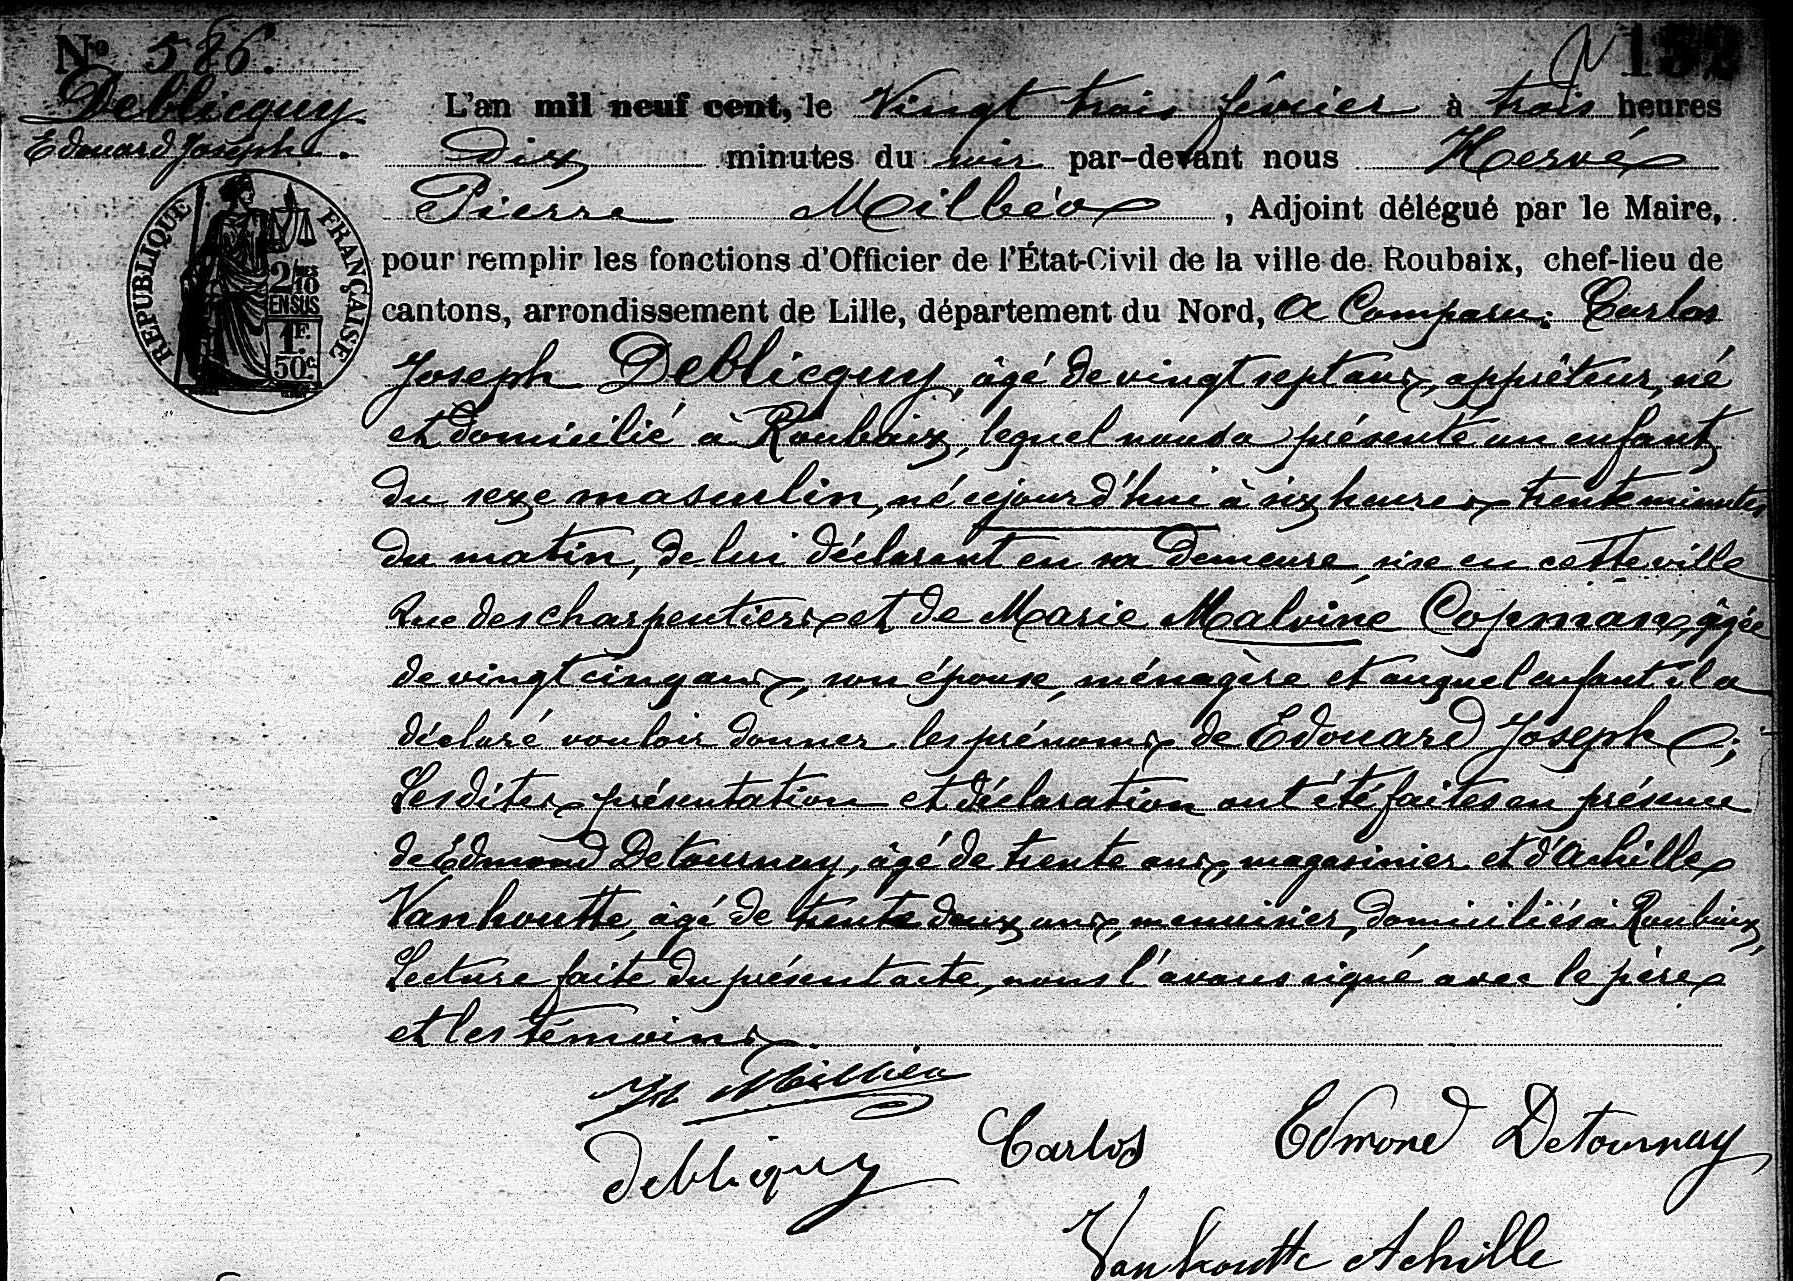 No 586.
152
Deblicquy
Edouard Joseph.
L'an mil neuf cent, le Vingt trois février à trois heures
Dix minutes du soir par-devant nous Hervé
Pierre Milbéo, Adjoint délégué par le Maire,
pour remplir les fonctions d'Officier de l'État-Civil de la ville de Roubaix, chef-lieu de
cantons, arrondissement de Lille, département du Nord, a Comparu: Carlos
Joseph Deblicquy, âgé de vingt sept ans, apprêteur, né
et domicilié à Roubaix, lequel nous a présenté un enfant
du sexe masculin, né cejourd'hui à six heures trente minutes
du matin, de lui déclarant en sa demeure sise en cette ville
Rue des charpentiers et de Marie Malvine Copman, âgée
de vingt cinq ans, son épouse, ménagère et auquel enfant il a
déclaré vouloir donner les prénoms de Edouard Joseph;
Lesdites présentation et déclaration ont été faites en présence
de Edmond Detournay, âgé de trente ans, magasinier et d'Achille
Vanhoutte, âgé de trente deux ans, menuisier, domiciliés à Roubaix,
Lecture faite du présent acte, nous l'avons signé avec le père
et les témoins.
REPUBLIQUE FRANÇAISE
2/10
EN SUS
1F.
50c
H Milbéo
Deblicquy Carlos Edmond Detournay
Vanhoutte Achille